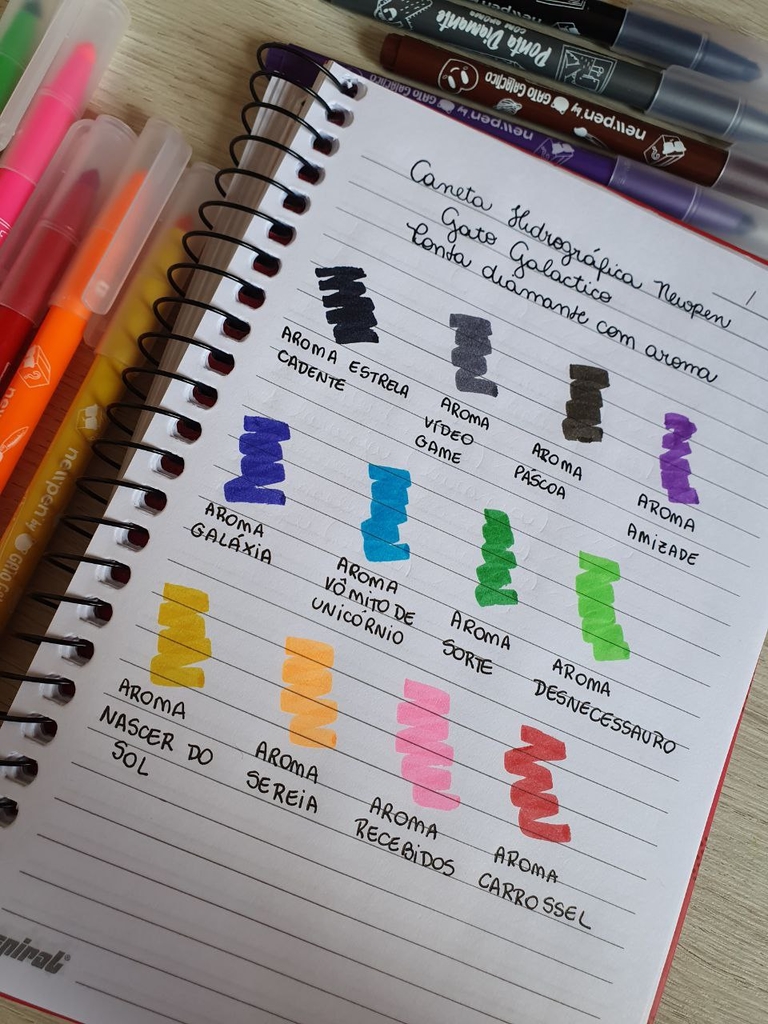 Ponta Diamante
COM AROMA
newpen by GATO GALÁCTICO
newpen by GATO GALÁCTICO
Caneta Hidrográfica Newpen
Gato Galactico
Ponta diamante com aroma
1
AROMA ESTRELA
CADENTE
AROMA
VÍDEO
GAME
AROMA
PÁSCOA
AROMA
AMIZADE
AROMA
GALÁXIA
AROMA
VÔMITO DE
UNICÓRNIO
AROMA
SORTE
AROMA
DESNECESSAURO
AROMA
NASCER DO
SOL
AROMA
SEREIA
AROMA
RECEBIDOS
AROMA
CARROSSEL
newpen by GATO GALÁC
spiral